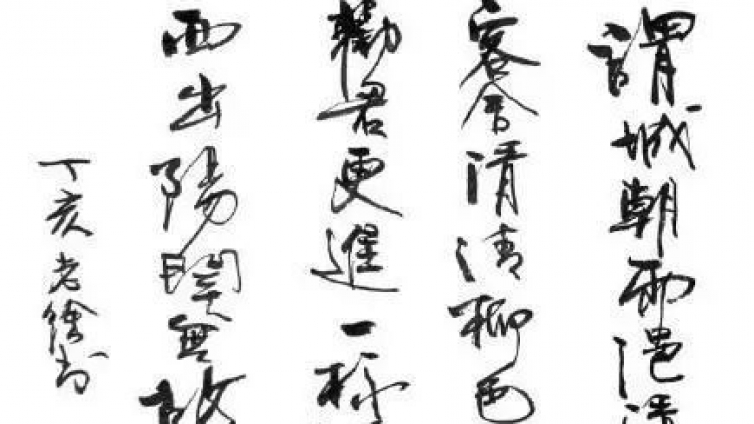 謂城朝雨浥清
客舍清清柳色
勸君更進一杯
西出陽關無故
丁亥老徐書